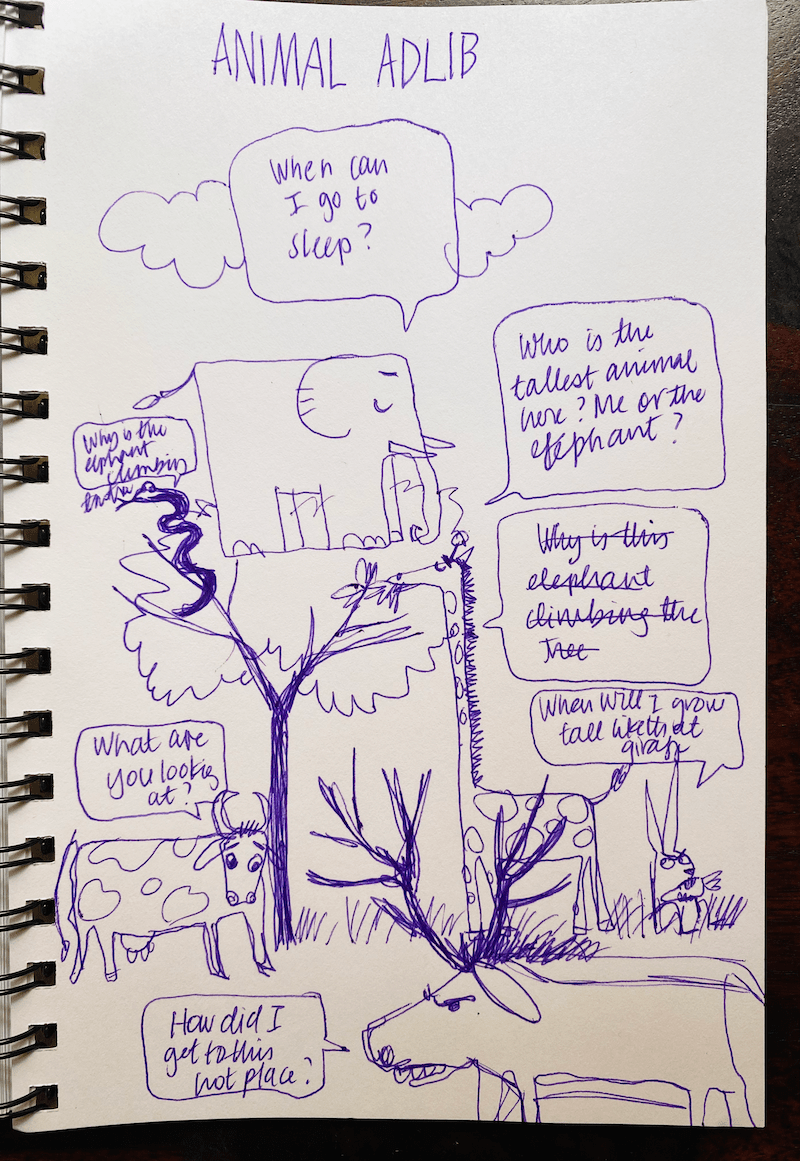 ANIMAL ADLIB
When can
I go to
sleep?
Who is the
tallest animal
here? Me or the
elephant?
Why is the
elphant
climbing
Why is this
elephant
climbing the
Tree
When will I grow
tall like that
giraf
What are
you looking
at?
How did I
get to this
hot place?